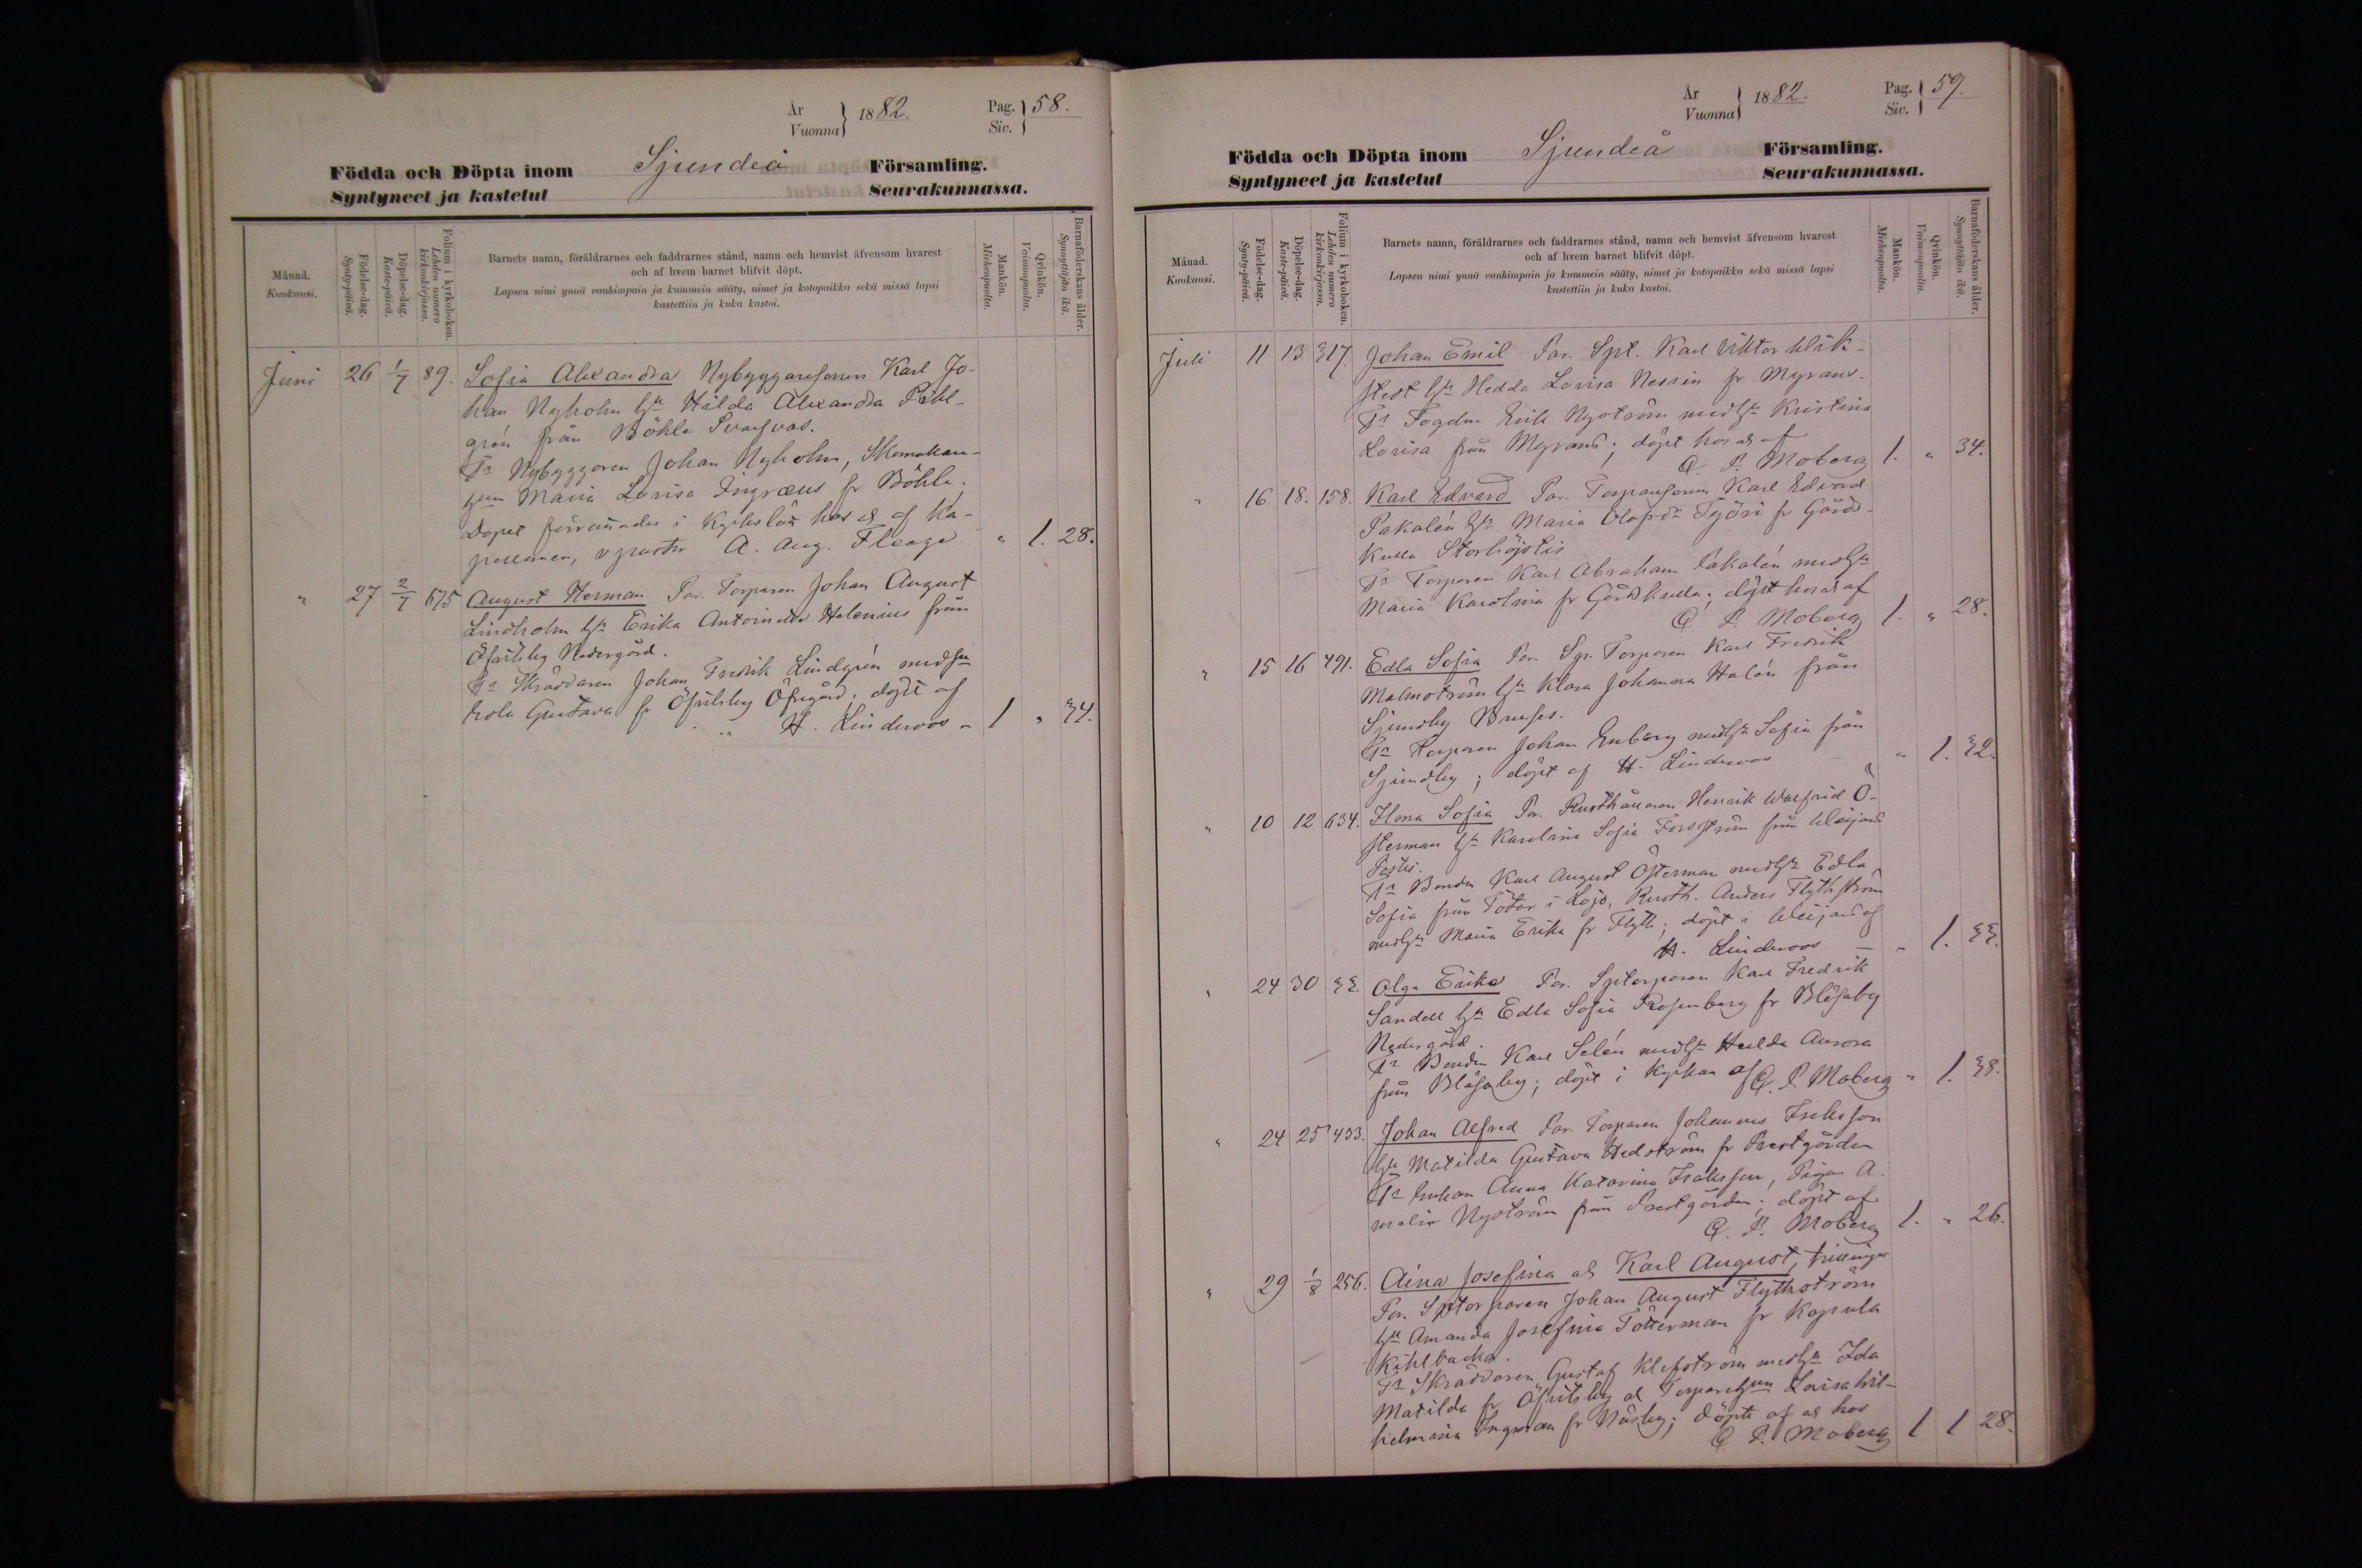 År
Vuonna
1882.
Pag.
Siv.
58.
Födda och Döpta inom Sjundeå Församling.
Syntyneet ja kastetut Seurakunnassa.
Månad.
Kuukausi.
Födelse-dag.
Synty-päivä.
Döpelse-dag.
Kaste-päivä.
Folium i kyrkoboken.
Lehden numero kirkonkirjassa.
Barnets namn, föräldrarnes och faddrarnes stånd, namn och hemvist äfvensom hvarest
och af hvem barnet blifvit döpt.
Lapsen nimi ynnä vanhimpain ja kummein sääty, nimet ja kotopaikka sekä missä lapsi
kastettiin ja kuka kastoi.
Mankön.
Miehenpuolta.
Qvinkön.
Vaimonpuolta.
Barnaföderskans ålder.
Synnyttäjän ikä.
Juni 26 1/7 89. Sofia Alexandra Nybyggaresonen Karl Jo-
han Nyholm hu Hilda Alexandra Pihl-
grén från Böhle
Fr Nybyggaren Johan Nyholm,
Maria Lovisa Ingræus fr Böhle.
Dopet förrättades i Kyrkslätt hos af Ka-
pellanen, v pastor A. Aug. Fleege " 1. 28.
" 27 2/7 675 August Herman Par. Torparen Johan August
Lindholm hu Erika Antoinetta Helenius från
Öfvitsby Nedergård.
Fr Skräddaren Johan Fredrik Lindgrén med hu
Gustava fr Öfvitsby Öfvergård; döpt af
H. Linderoos 1 " 34.
År
Vuonna
1882.
Pag.
Siv.
59.
Födda och Döpta inom Sjundeå Församling.
Syntyneet ja kastetut Seurakunnassa.
Månad.
Kuukausi.
Födelse-dag.
Synty-päivä.
Döpelse-dag.
Kaste-päivä.
Folium i kyrkoboken.
Lehden numero kirkonkirjassa.
Barnets namn, föräldrarnes och faddrarnes stånd, namn och hemvist äfvensom hvarest
och af hvem barnet blifvit döpt.
Lapsen nimi ynnä vanhimpain ja kummein sääty, nimet ja kotopaikka sekä missä lapsi
kastettiin ja kuka kastoi.
Mankön.
Miehenpuolta.
Qvinkön.
Vaimonpuolta.
Barnaföderskans ålder.
Synnyttäjän ikä.
Juli 11 13 317. Johan Emil Par. Spt. Karl Viktor Wik-
stedt hu Hedda Lovisa Nessin fr Myrans.
Fr Fogden Erik Nyström med hu Kristina
Lovisa från Myrans; döpt hos af
Q. P. Moberg 1. " 34.
" 16. 18. 158. Karl Edvard Par. Torparsonen Karl Edvard
Pakalén hu Maria Olofsdr Työri fr Gårds-
kulla Storhöjstis
Fr Torparen Karl Abraham Pakalén med hu
Maria Karolina fr Gårdskulla; döpt hos af
Q. P. Moberg 1. " 28.
" 15 16 491. Edla Sofia Par. Sp. Torparen Karl Fredrik
Malmström hu Klara Johanna Halén från
Sjundby
Fr Torparen Johan Enberg med hu Sofia från
Sjundby; döpt af H. Linderoos " 1. 32.
" 10 12 634. Ilona Sofia Par. Rusthållaren Henrik Walfrid Ö-
sterman hu Karolina Sofia Forsström från Weijans
Fr Bonden Karl August Österman med hu Edla
Sofia från Totar i Lojo, Rusth. Anders Flythström
med hu Maria Erika fr Flyth; döpt i Weijans af
H. Linderoos " 1. 33.
" 24 30 33. Olga Erika Par. Sptorparen Karl Fredrik
Sandell hu Edla Sofia Rosenberg fr Blåsaby
Nedergård.
Fr Bonden Karl Selén med hu Hulda Aurora
från Blåsaby; döpt i Kyrkan af Q. P. Moberg " 1. 38.
" 24 25 433. Johan Alfred Par. Torparen Johannes Isaksson
hu Matilda Gustava Hedström fr Prestgården
Fr Enkan Anna Katarina Isaksson, Pigan A-
malia Nyström från Prestgården; döpt af
Q. P. Moberg 1. " 26.
" 29 1/8 256. Aina Josefina och Karl August, tvillingar
Par. Sptorparen Johan August Flythström
hu Amanda Josefina Tötterman fr Kopula
Kihlbacka.
Fr Skräddaren Gustaf Klefström med hu Ida
Matilda fr Öfvitsby och Torpareh:un Lovisa Wil-
helmina Ingman fr Näsby; döpte af hos
Q. P. Moberg 1 1 28.